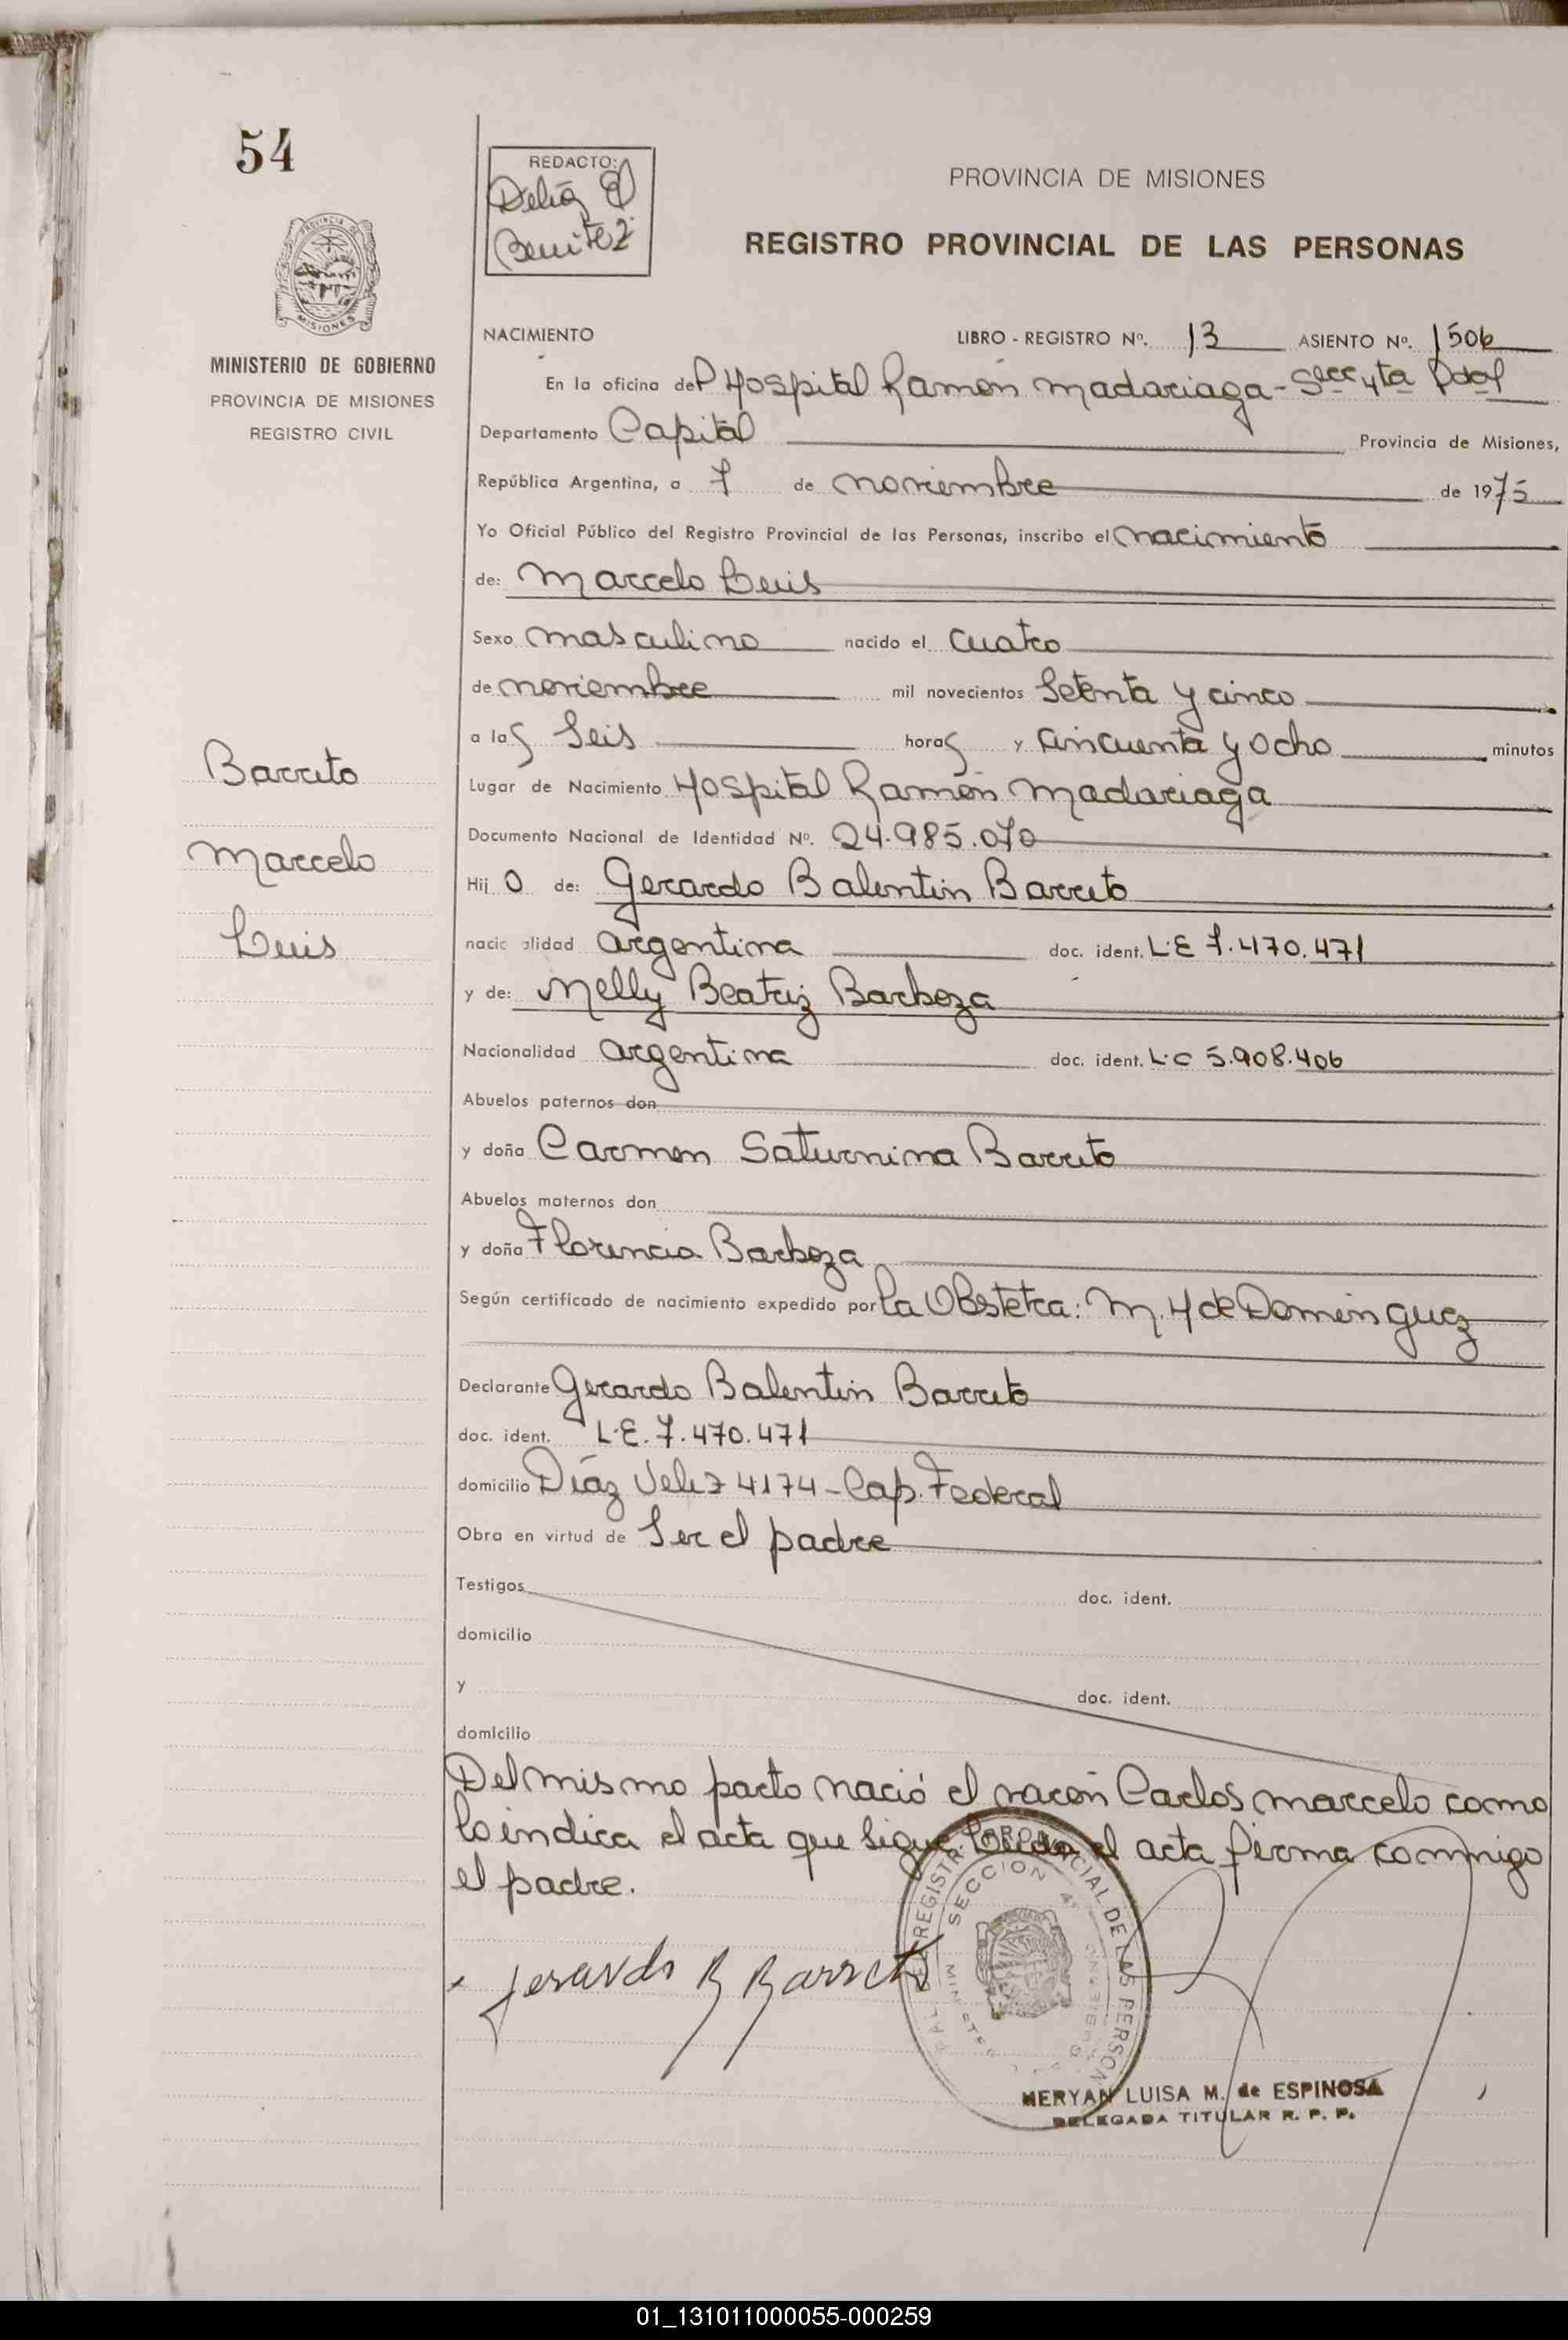 54
REDACTO:
Delia E
Benitez
PROVINCIA DE MISIONES
REGISTRO PROVINCIAL DE LAS PERSONAS
PROVINCIA DE
MISIONES
MINISTERIO DE GOBIERNO
PROVINCIA DE MISIONES
REGISTRO CIVIL
NACIMIENTO LIBRO - REGISTRO Nº. 13 ASIENTO Nº. 1506
En la oficina del Hospital Ramón Madariaga - Secc 4ta Pdas
Departamento Capital Provincia de Misiones,
República Argentina, a 7 de noviembre de 1975
Yo Oficial Público del Registro Provincial de las Personas, inscribo el nacimiento
de: Marcelo Luis
Sexo masculino nacido el cuatro
de noviembre mil novecientos Setenta y cinco
a las Seis horas y cincuenta y ocho minutos
Lugar de Nacimiento Hospital Ramón Madariaga
Documento Nacional de Identidad Nº. 24.985.070
Hijo de: Gerardo Balentin Barreto
nacionalidad argentina doc. ident. L.E 7.470.471
y de: Nelly Beatriz Barboza
Nacionalidad argentina doc. ident. L.C 5.908.406
Abuelos paternos don
y doña Carmen Saturnina Barreto
Abuelos maternos don
y doña Florencia Barboza
Según certificado de nacimiento expedido por la Obstetra: M. H de Dominguez
Declarante Gerardo Balentin Barreto
doc. ident. L.E. 7.470.471
domicilio Díaz Velez 4174 - Cap. Federal
Obra en virtud de Ser el padre
Testigos doc. ident.
domicilio
y doc. ident.
domicilio
Del mismo parto nació el varón Carlos Marcelo como
lo indica el acta que sigue. Leida el acta firma conmigo
el padre.
Barreto
Marcelo
Luis
Gerardo B Barreto
REGISTRO PROVINCIAL DE LAS PERSONAS
SECCION 4ª
MERYAN LUISA M. de ESPINOSA
DELEGADA TITULAR R. P. P.
01_131011000055-000259